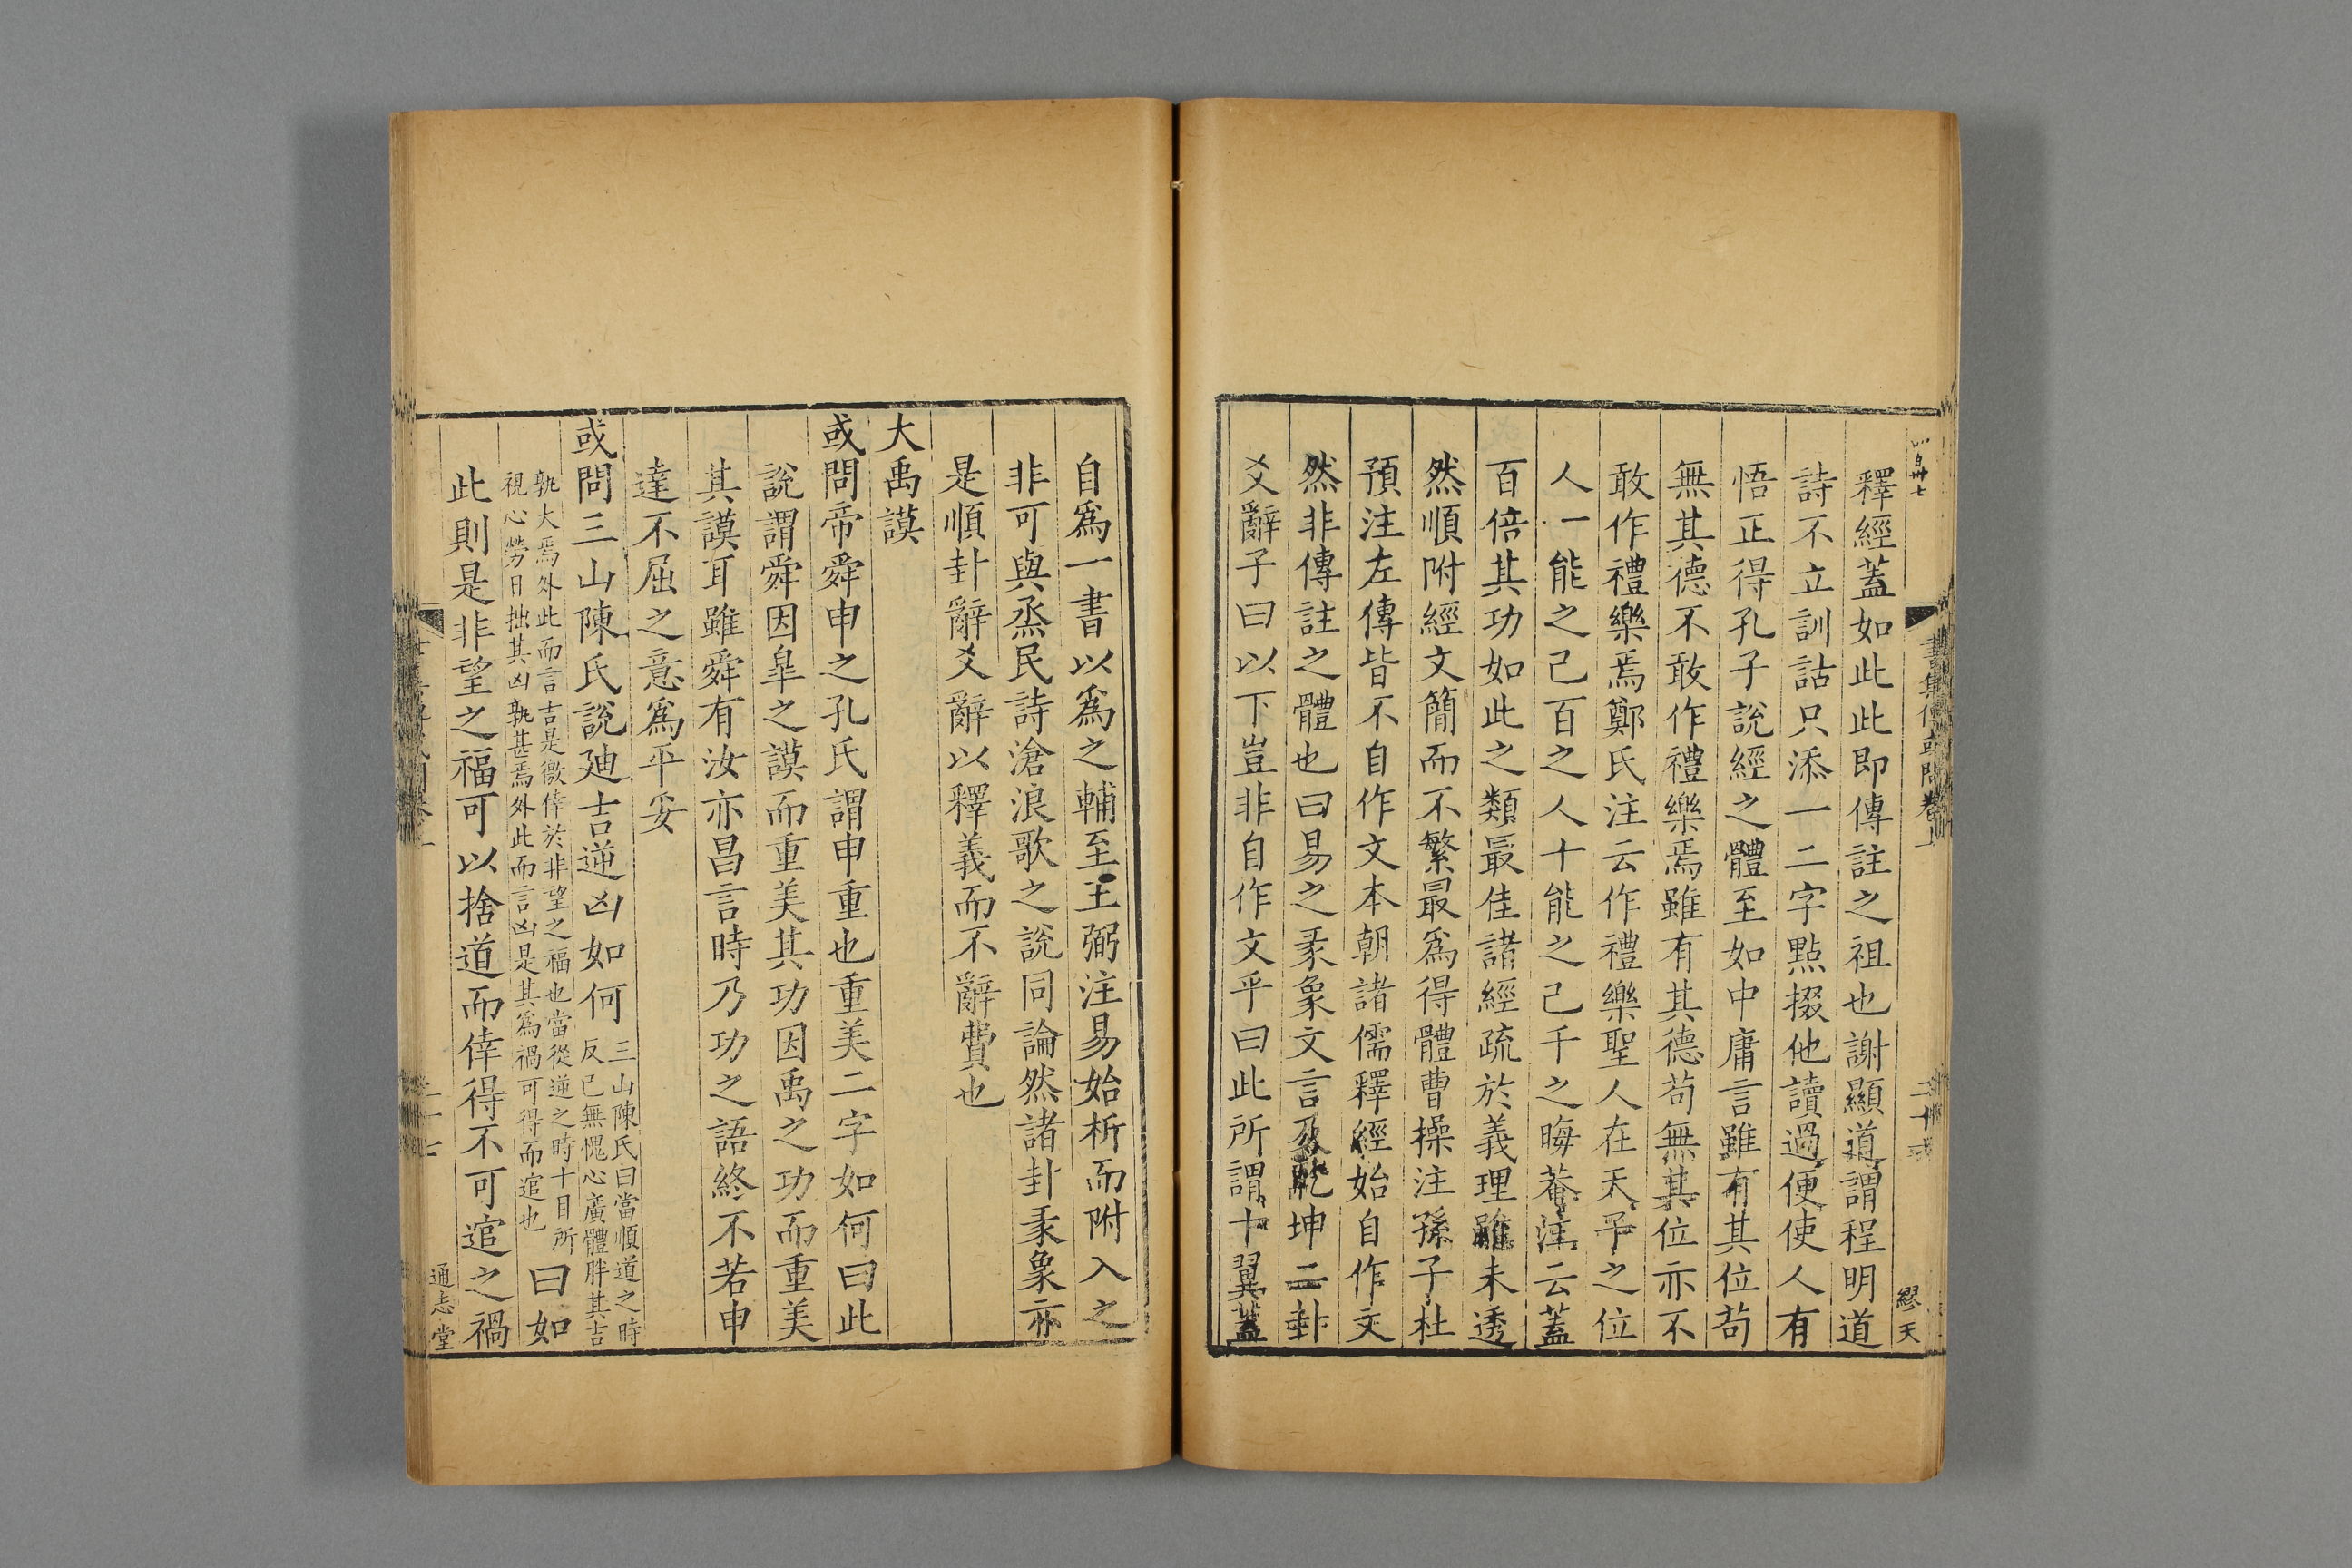 釋經蓋如此此即傳註之祖也謝顯道謂程明道
詩不立訓詁只添一二字點掇他讀過便使人有
悟正得孔子說經之體至如中庸言雖有其位苟
無其德不敢作禮樂焉雖有其德苟無其位亦不
敢作禮樂焉鄭氏注云作禮樂聖人在天子之位
人一能之己百之人十能之己千之晦菴注云蓋
百倍其功如此之類最佳諸經疏於義理雖未透
然順附經文簡而不繁最爲得體曹操注孫子杜
預注左傳皆不自作文本朝諸儒釋經始自作文
然非傳註之體也曰易之彖象文言及乾坤二卦
爻辭子曰以下豈非自作文乎曰此所謂十翼蓋
自爲一書以爲之輔至王弼注易始析而附入之
非可與烝民詩滄浪歌之說同論然諸卦彖象亦
是順卦辭爻辭以釋義而不辭費也
大禹謨
或問帝舜申之孔氏謂申重也重美二字如何曰此
說謂舜因皐之謨而重美其功因禹之功而重美
其謨耳雖舜有汝亦昌言時乃功之語終不若申
達不屈之意爲平妥
或問三山陳氏說廸吉逆凶如何
三山陳氏曰當順道之時
反己無愧心廣體胖其吉
孰大焉外此而言吉是徼倖於非望之福也當從逆之時十目所
視心勞日拙其凶孰甚焉外此而言凶是其爲禍可得而逭也
曰如
此則是非望之福可以捨道而倖得不可逭之禍
通志堂
書集傳或問卷上
繆天